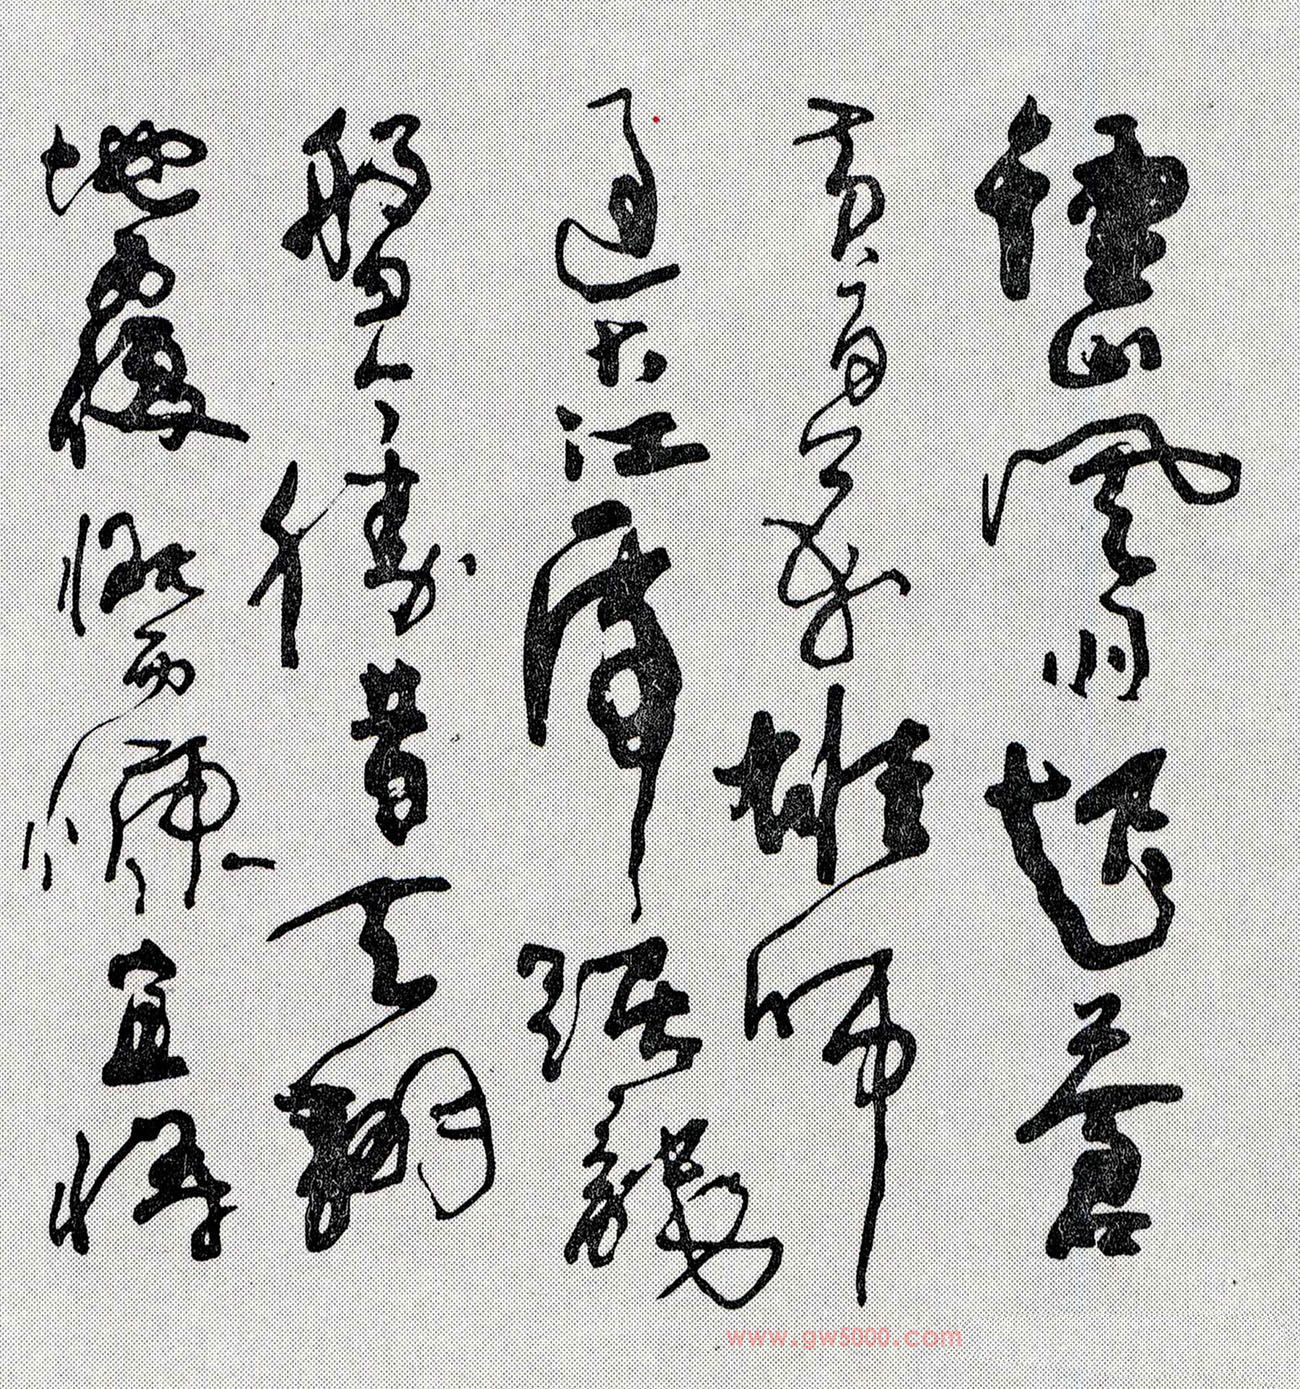 鍾山風雨起蒼
黃百萬雄師
過大江虎踞龍
盤今勝昔天翻
地覆慨而慷宜將
www.gw5000.com